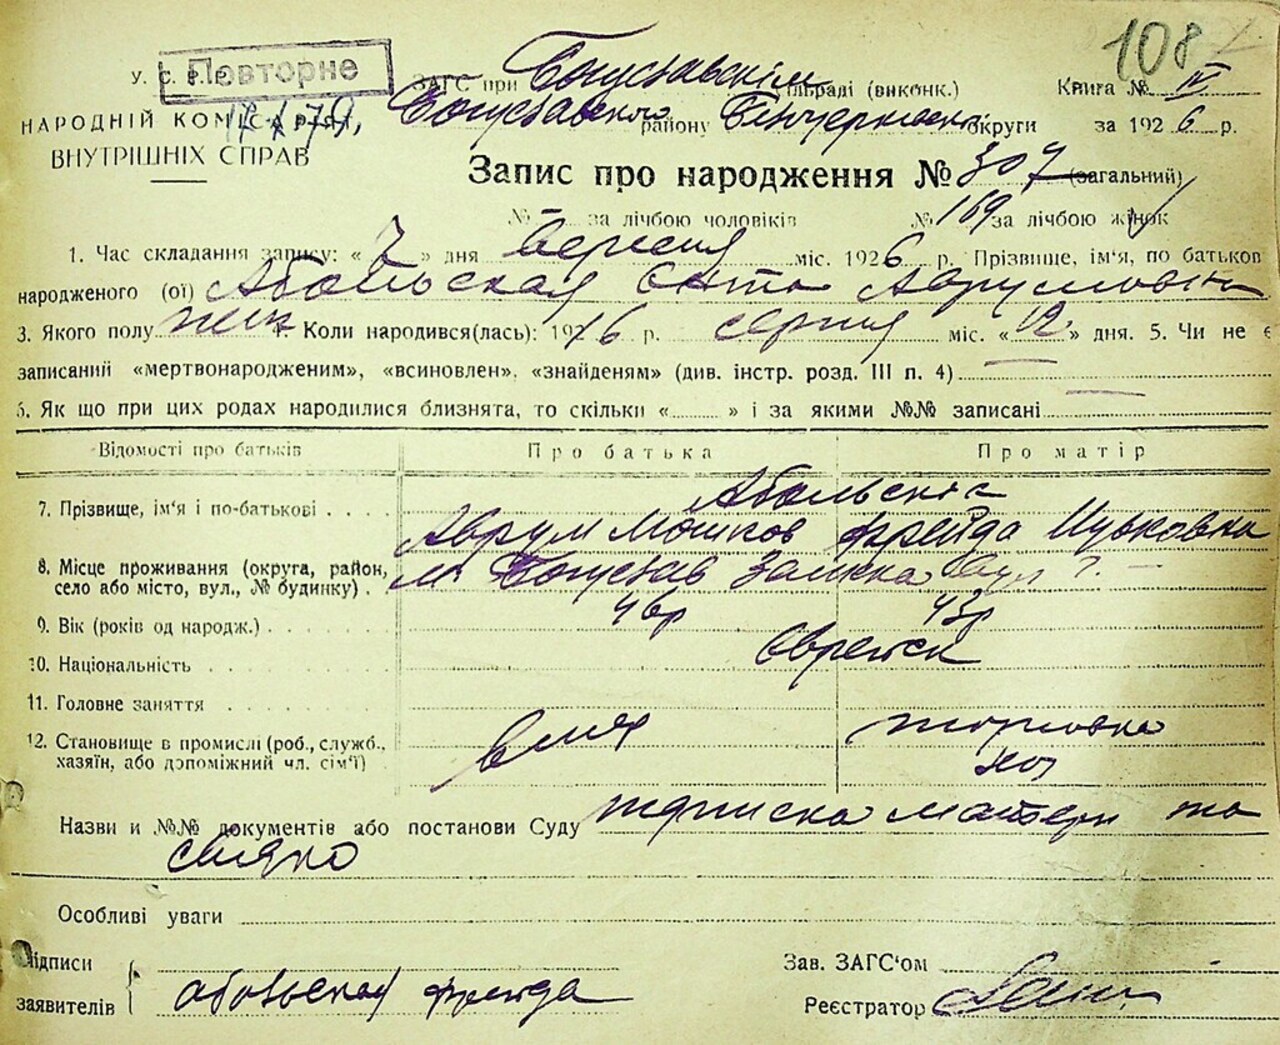 108
У. С. Р. Р. Повторне ЗАГС при Богуславскім міськраді (виконк.) Книга № IV
НАРОДНІЙ КОМІСАРІЯТ Богуславского району Білоцерковскої округи за 1926 р.
ВНУТРІШНІХ СПРАВ
Запис про народження № 307 (загальний)
№ за лічбою чоловіків № 169 за лічбою жінок
1. Час складання запису: «7» дня вересня міс. 1926 р. Прізвище, ім'я, по батькові
народженого (ої) Абольская Аврумовна
3. Якого полу жін 4. Коли народився(лась): 1916 р. серпня міс. «12» дня. 5. Чи не є
записаний «мертвонародженим», «всиновлен», «знайденям» (див. інстр. розд. III п. 4)
6. Як що при цих родах народилися близнята, то скільки « » і за якими №№ записані
Відомості про батьків Про батька Про матір
7. Прізвище, ім'я і по-батькові Абольскіє
Аврум Мошков Фрейда Ицьковна
8. Місце проживання (округа, район,
село або місто, вул., № будинку) м. Богуслав Замкова вул 7.
9. Вік (років од народж.) 46р 43р
10. Національність Єврейск
11. Головне заняття
12. Становище в промислі (роб., служб.,
хазяїн, або допоміжний чл. сім'ї) торговка
хоз
Назви и №№ документів або постанови Суду підписка матери та
свідко
Особливі уваги
Підписи Зав. ЗАГС'ом
заявителів Абольская Фрейда Реєстратор